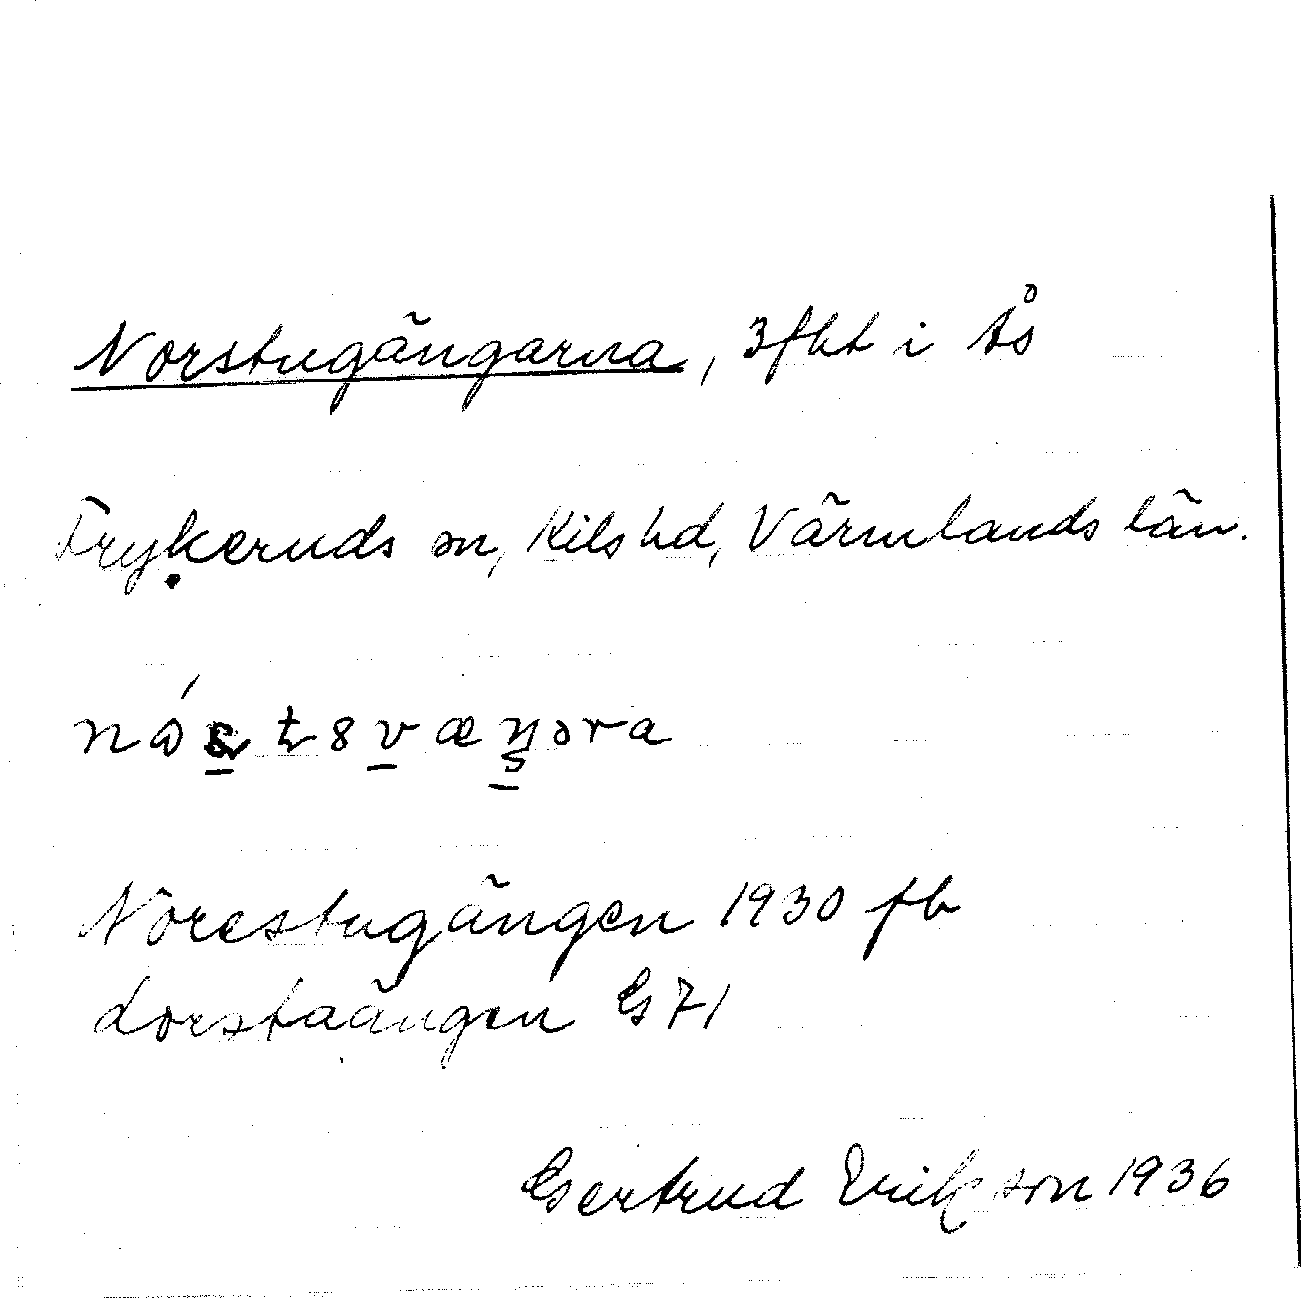 Norstugängarna, 3 fht i Ås
Frykeruds sn, Kils hd, Värmlands län.
Norestugängen 1930 fb
Lorstaängen G 71
Gertrud Erikson 1936